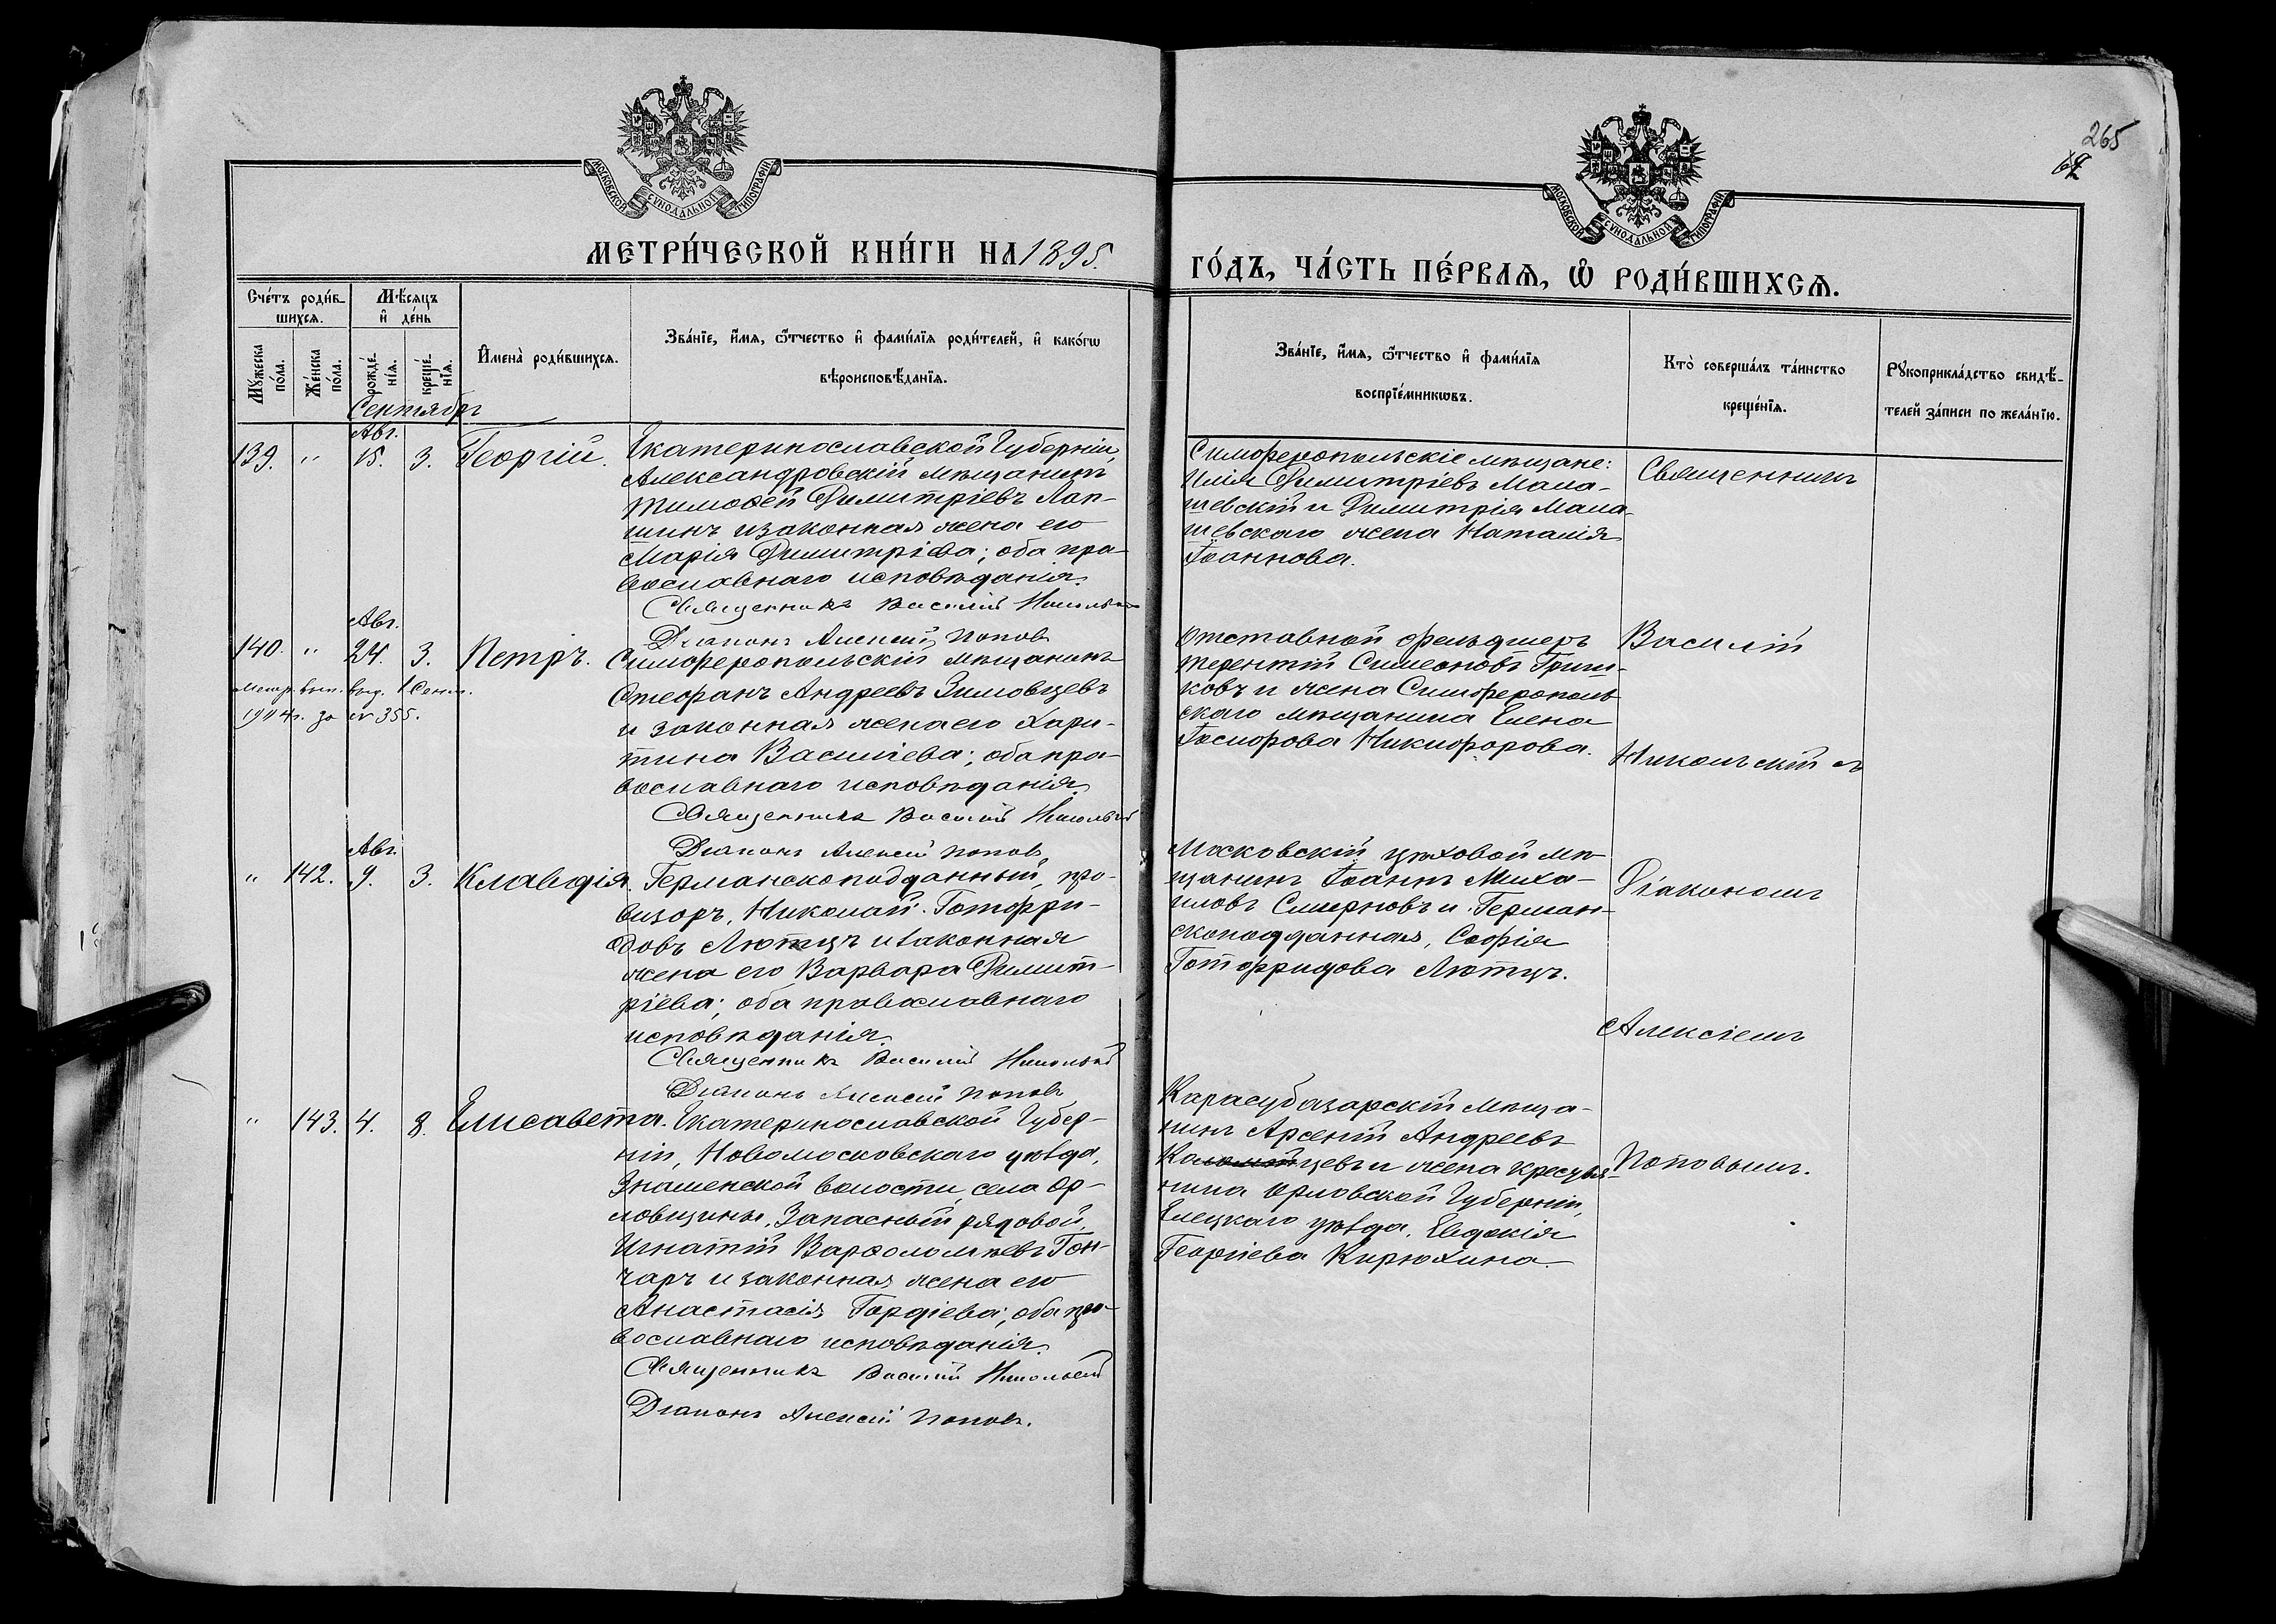 265
МОСКОВСКОЙ СѴНОДАЛЬНОЙ ТИПОГРАФІИ
МОСКОВСКОЙ СѴНОДАЛЬНОЙ ТИПОГРАФІИ
МЕТРИ́ЧЕСКОЙ КНИ́ГИ НА 1895.
ГО́ДЪ, ЧА́СТЬ ПЕ́РВАѦ, Ѿ РОДИ́ВШИХСѦ.
Сче́тъ роди́в-
шихсѧ.
Мѣ́сѧцъ
и҆ де́нь
Мꙋ́жеска
по́ла.
Же́нска
по́ла.
рожде́-
нїѧ.
креще́-
нїѧ.
И҆мена̀ роди́вшихсѧ.
Зва́нїе, и҆́мѧ, ѻ҆́тчество и҆ фами́лїѧ роди́телей, и҆ како́гѡ
вѣроисповѣ́данїѧ.
Зва́нїе, и҆́мѧ, ѻ҆́тчество и҆ фами́лїѧ
воспрїе́мникѡвъ.
Кто̀ соверша́лъ та́инство
креще́нїѧ.
Рꙋкоприкла́дство свидѣ́-
телей за́писи по жела́нїю.
Сентябрь
Авг.
139. " 15. 3. Георгій.
Екатеринославской Губерніи,
Александровскій мѣщанинъ
Тимоѳей Димитріевъ Лап-
шинъ и законная жена его
Марія Димитріева; оба пра-
вославнаго исповѣданія.
Священникъ Василій Никольскій
Діаконъ Алексій Поповъ
Симферопольскіе мѣщане:
Илія Димитріевъ Мала-
шевскій и Димитрія Мала-
шевскаго жена Наталія
Іоаннова.
Священникъ
Авг.
140. " 24. 3. Петръ.
Метр. вып. выд. 1 Сент.
1914 г. за № 355.
Симферопольскій мѣщанинъ
Стефанъ Андреевъ Зимовцевъ
и законная жена его Хари-
тина Василіева; оба пра-
вославнаго исповѣданія.
Священникъ Василій Никольскій
Діаконъ Алексій Поповъ
Отставной фельдшеръ
Терентій Симеоновъ Гриш-
ковъ и жена Симферополь-
скаго мѣщанина Елена
Іосифова Никифорова.
Василій
Никольскій съ
Авг.
" 142. 9. 3. Клавдія.
Германскоподданный, про-
визоръ, Николай Готфри-
довъ Лютцъ и законная
жена его Варвара Димит-
ріева; оба православнаго
исповѣданія.
Священникъ Василій Никольскій
Діаконъ Алексій Поповъ
Московскій цеховой мѣ-
щанинъ Іоаннъ Миха-
иловъ Смирновъ и Герман-
скоподданная, Софія
Готфридова Лютцъ.
Діакономъ
Алексіемъ
" 143. 4. 8. Елисавета.
Екатеринославской Губер-
ніи, Новомосковскаго уѣзда,
Знаменской волости, села Ор-
ловщины, Запасный рядовой,
Игнатій Варѳоломеевъ Гон-
чаръ и законная жена его
Анастасія Гордіева; оба пра-
вославнаго исповѣданія.
Священникъ Василій Никольскій
Діаконъ Алексій Поповъ.
Карасубазарскій мѣща-
нинъ Арсеній Андреевъ
Коломойцевъ и жена крестья-
нина Орловской Губерніи,
Елецкаго уѣзда, Евдокія
Георгіева Кирюхина.
Поповымъ.